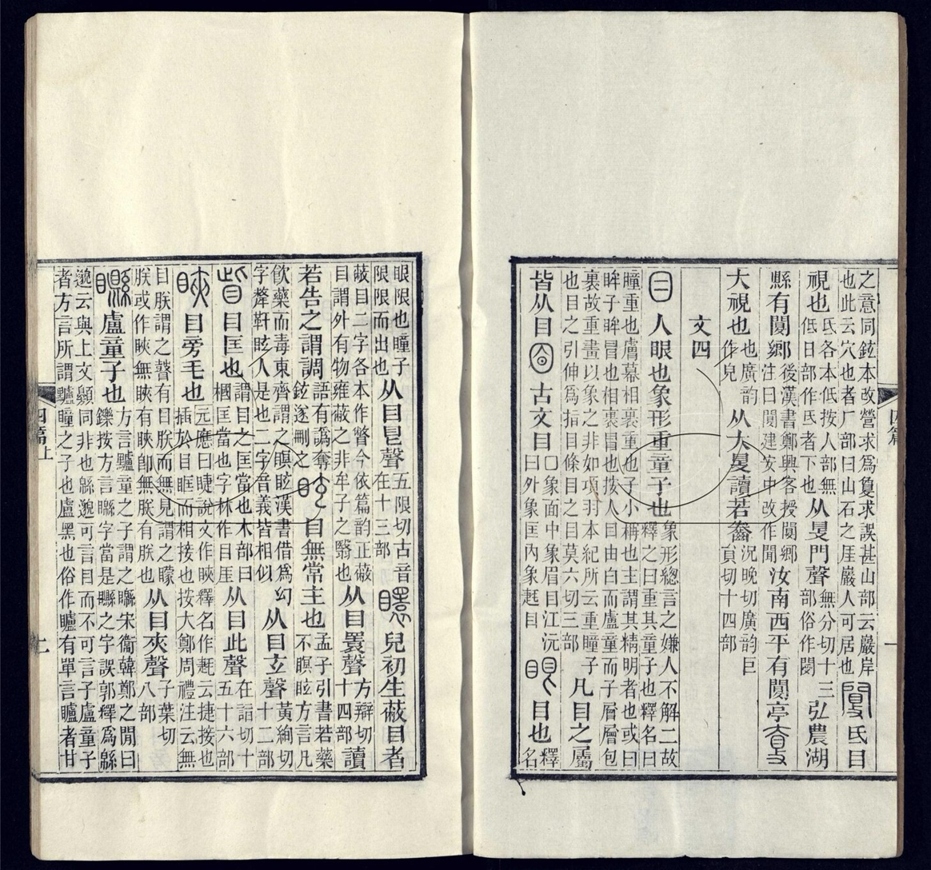 之意同鉉本改營求爲敻求誤甚山部云巖岸
也此云穴也者厂部曰山石之厓巖人可居也
䦧氐目
視也氐各本低按人部無
低日部作氐者下也
从𥄎門聲無分切十
三部俗作閿
弘農湖
縣有䦧鄉後漢書鄭興客授䦧鄉
注曰䦧建安中改作聞
汝南西平有䦧亭𡙇
大視也也廣韵
作皃
从大𥄎讀若齤況晚切廣韵巨
員切十四部
文四
目人眼也象形重童子也象形總言之嫌人不解二故
釋之曰重其童子也釋名曰
瞳重也膚幕相裹重也子小稱也主謂其精明者也或曰
眸子眸冒也相裹冒也按人目由白而盧童而子層層包
裹故重畫以象之非如項羽本紀所云重瞳子
也目之引伸爲指目條目之目莫六切三部
凡目之屬
皆从目
古文目口象面中象眉目江沅
曰外象匡內象䟫目
眼目也釋
名
四篇
一
眼限也瞳子
限限而出也
从目𥃩聲五限切古音
在十三部
矏兒初生蔽目者
蔽目二字各本作瞥今依篇韵正蔽
目謂外有物雍蔽之非牟子之翳也
从目瞏聲方辯切
十四部
讀
若告之謂調語有譌奪
鉉遂刪之
眩目無常主也孟子引書若藥
不瞑眩方言凡
飮藥而毒東齊謂之瞑眩漢書借爲幻
字犛靬眩人是也二字音義皆相似
从目玄聲黃絢切
十二部
眥目匡也謂目之匡當也木部曰
槶匡當也字林作目厓
从目此聲在詣切十
五十六部
䀹目㫄毛也元應曰睫說文作䀹釋名作䟫云捷接也
插於目匡而相接也按大鄭周禮注云無
目朕謂之瞽有目朕而無見謂之矇
朕或作䀹無䀹有䀹卽無朕有朕也
从目夾聲子葉切
八部
矊盧童子也方言矑童之子謂之䁠宋衞韓鄭之閒曰
鑠按方言䁠字當是矊之字誤郭釋爲緜
邈云與上文顤同非也緜邈可言目而不可言子盧童子
者方言所謂矑瞳之子也盧黑也俗作矑有單言矑者甘
四篇上